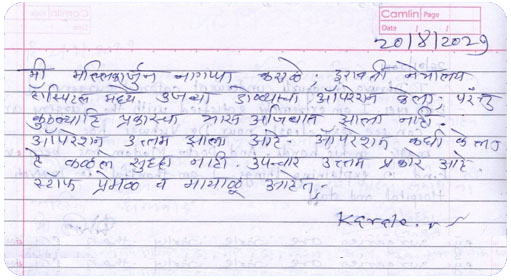 Camlin Page
Date / /
20/8/2029
मी मल्लिकार्जुन नागप्पा कराळे, इरावती नेत्रालय
हॉस्पिटल मध्ये उजव्या डोळ्याचा ऑपरेशन केला; परंतु
कुठल्याहि प्रकारचा त्रास अजिबात झाला नाही.
ऑपरेशन उत्तम झाला आहे. ऑपरेशन कधी केलं
हे कळलं सुद्धा नाही. उपचार उत्तम प्रकारे आहे.
स्टॉफ प्रेमळ व मायाळू आहेत.
Karale.